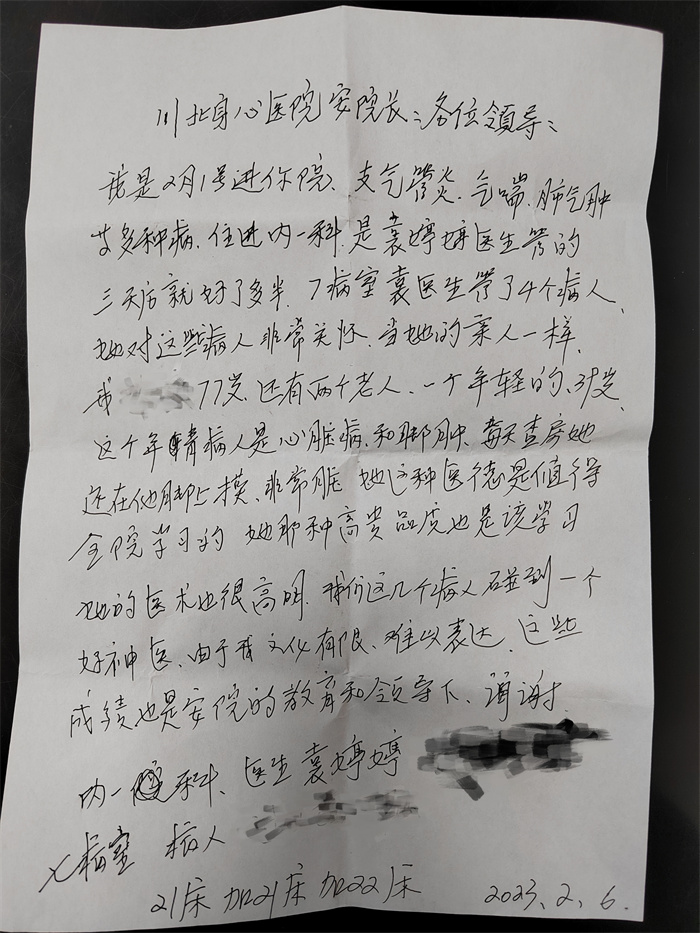 川北身心医院安院长:各位領导:
我是2月1号进你院、支气管火.气喘.肺气肿
等多种病.住进内一科.是袁婷婷医生管的
三天后就好了多半.7病室袁医生管了4个病人、
她对这些病人非常关怀.当她的亲人一样.
我 77岁.还有两个老人、一个年轻的、39岁、
这个年精病人是心脏病.和脚肿.每天查房她
还在他脚上摸、非常脏 她这种医德是值得
全院学习的 她那种高贵品质也是该学习
她的医术也很高明.我们这几个病人碰到一个
好神医、由于我文化有限、难以表达.这些
成绩也是安院的教育和领导下、谓谢.
内一科、医生袁婷婷
七病室 病人
21床 加21床 加22床 2023、2、6.